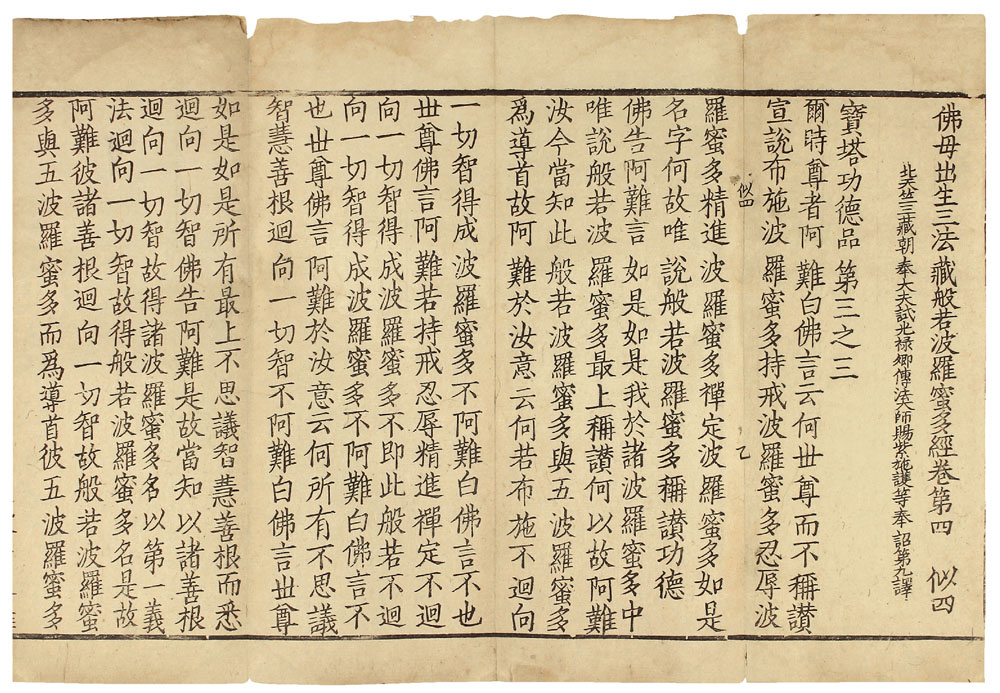 佛母出生三法藏般若波羅蜜多經卷第四 似四
北天竺三藏朝奉大夫試光禄卿傳法大師賜紫施護等奉 詔第九譯
寶塔功德品第三之三
爾時尊者阿難白佛言云何世尊而不稱讃
宣說布施波羅蜜多持戒波羅蜜多忍辱波
似四 乙
羅蜜多精進波羅蜜多禪定波羅蜜多如是
名字何故唯說般若波羅蜜多稱讃功德
佛告阿難言如是如是我於諸波羅蜜多中
唯說般若波羅蜜多最上稱讃何以故阿難
汝今當知此般若波羅蜜多與五波羅蜜多
爲導首故阿難於汝意云何若布施不迴向
一切智得成波羅蜜多不阿難白佛言不也
世尊佛言阿難若持戒忍辱精進禪定不迴
向一切智得成波羅蜜多不即此般若不迴
向一切智得成波羅蜜多不阿難白佛言不
也世尊佛言阿難於汝意云何所有不思議
智慧善根迴向一切智不阿難白佛言世尊
如是如是所有最上不思議智慧善根而悉
迴向一切智佛告阿難是故當知以諸善根
迴向一切智故得諸波羅蜜多名以第一義
法迴向一切智故得般若波羅蜜多名是故
阿難彼諸善根迴向一切智故般若波羅蜜
多與五波羅蜜多而爲導首彼五波羅蜜多